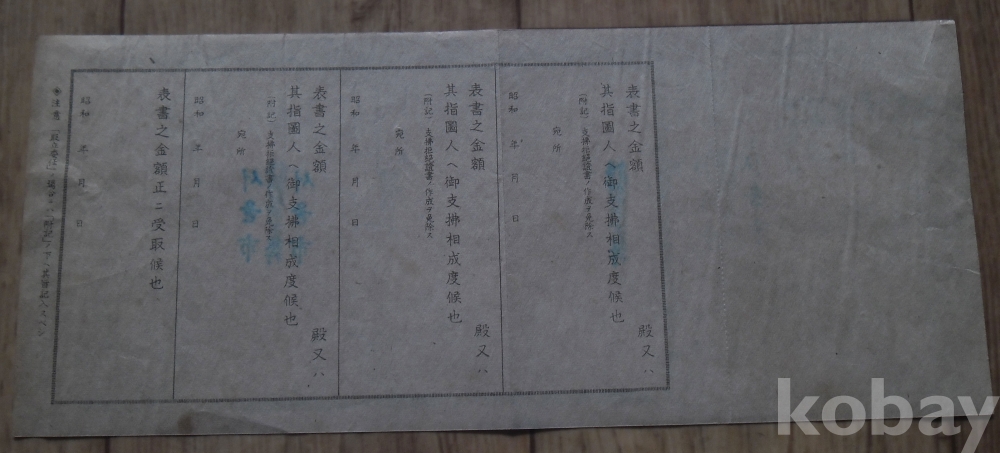 表書之金額
殿又ハ
其指圖人ヘ御支拂相成度候也
(附記)支拂拒絶證書ノ作成ヲ免除ス
昭和 年 月 日
宛所
表書之金額
殿又ハ
其指圖人ヘ御支拂相成度候也
(附記)支拂拒絶證書ノ作成ヲ免除ス
宛所
昭和 年 月 日
表書之金額
殿又ハ
其指圖人ヘ御支拂相成度候也
(附記)支拂拒絶證書ノ作成ヲ免除ス
宛所
昭和 年 月 日
表書之金額正ニ受取候也
昭和 年 月 日
kobay